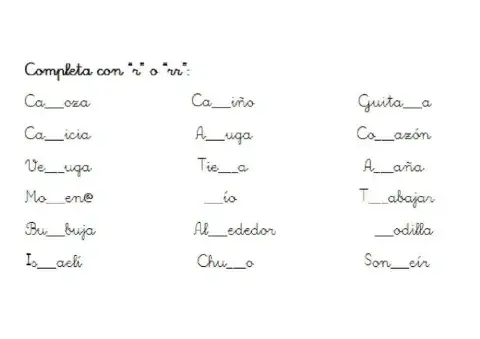 Completa con "r" o "rr":
Ca__oza Ca__iño Guita__a
Ca__icia A__uga Co__azón
Ve__uga Tie__a A__aña
Mo__en@ __ío T__abajar
Bu__buja Al__ededor __odilla
Is__aelí Chu__o Son__eír